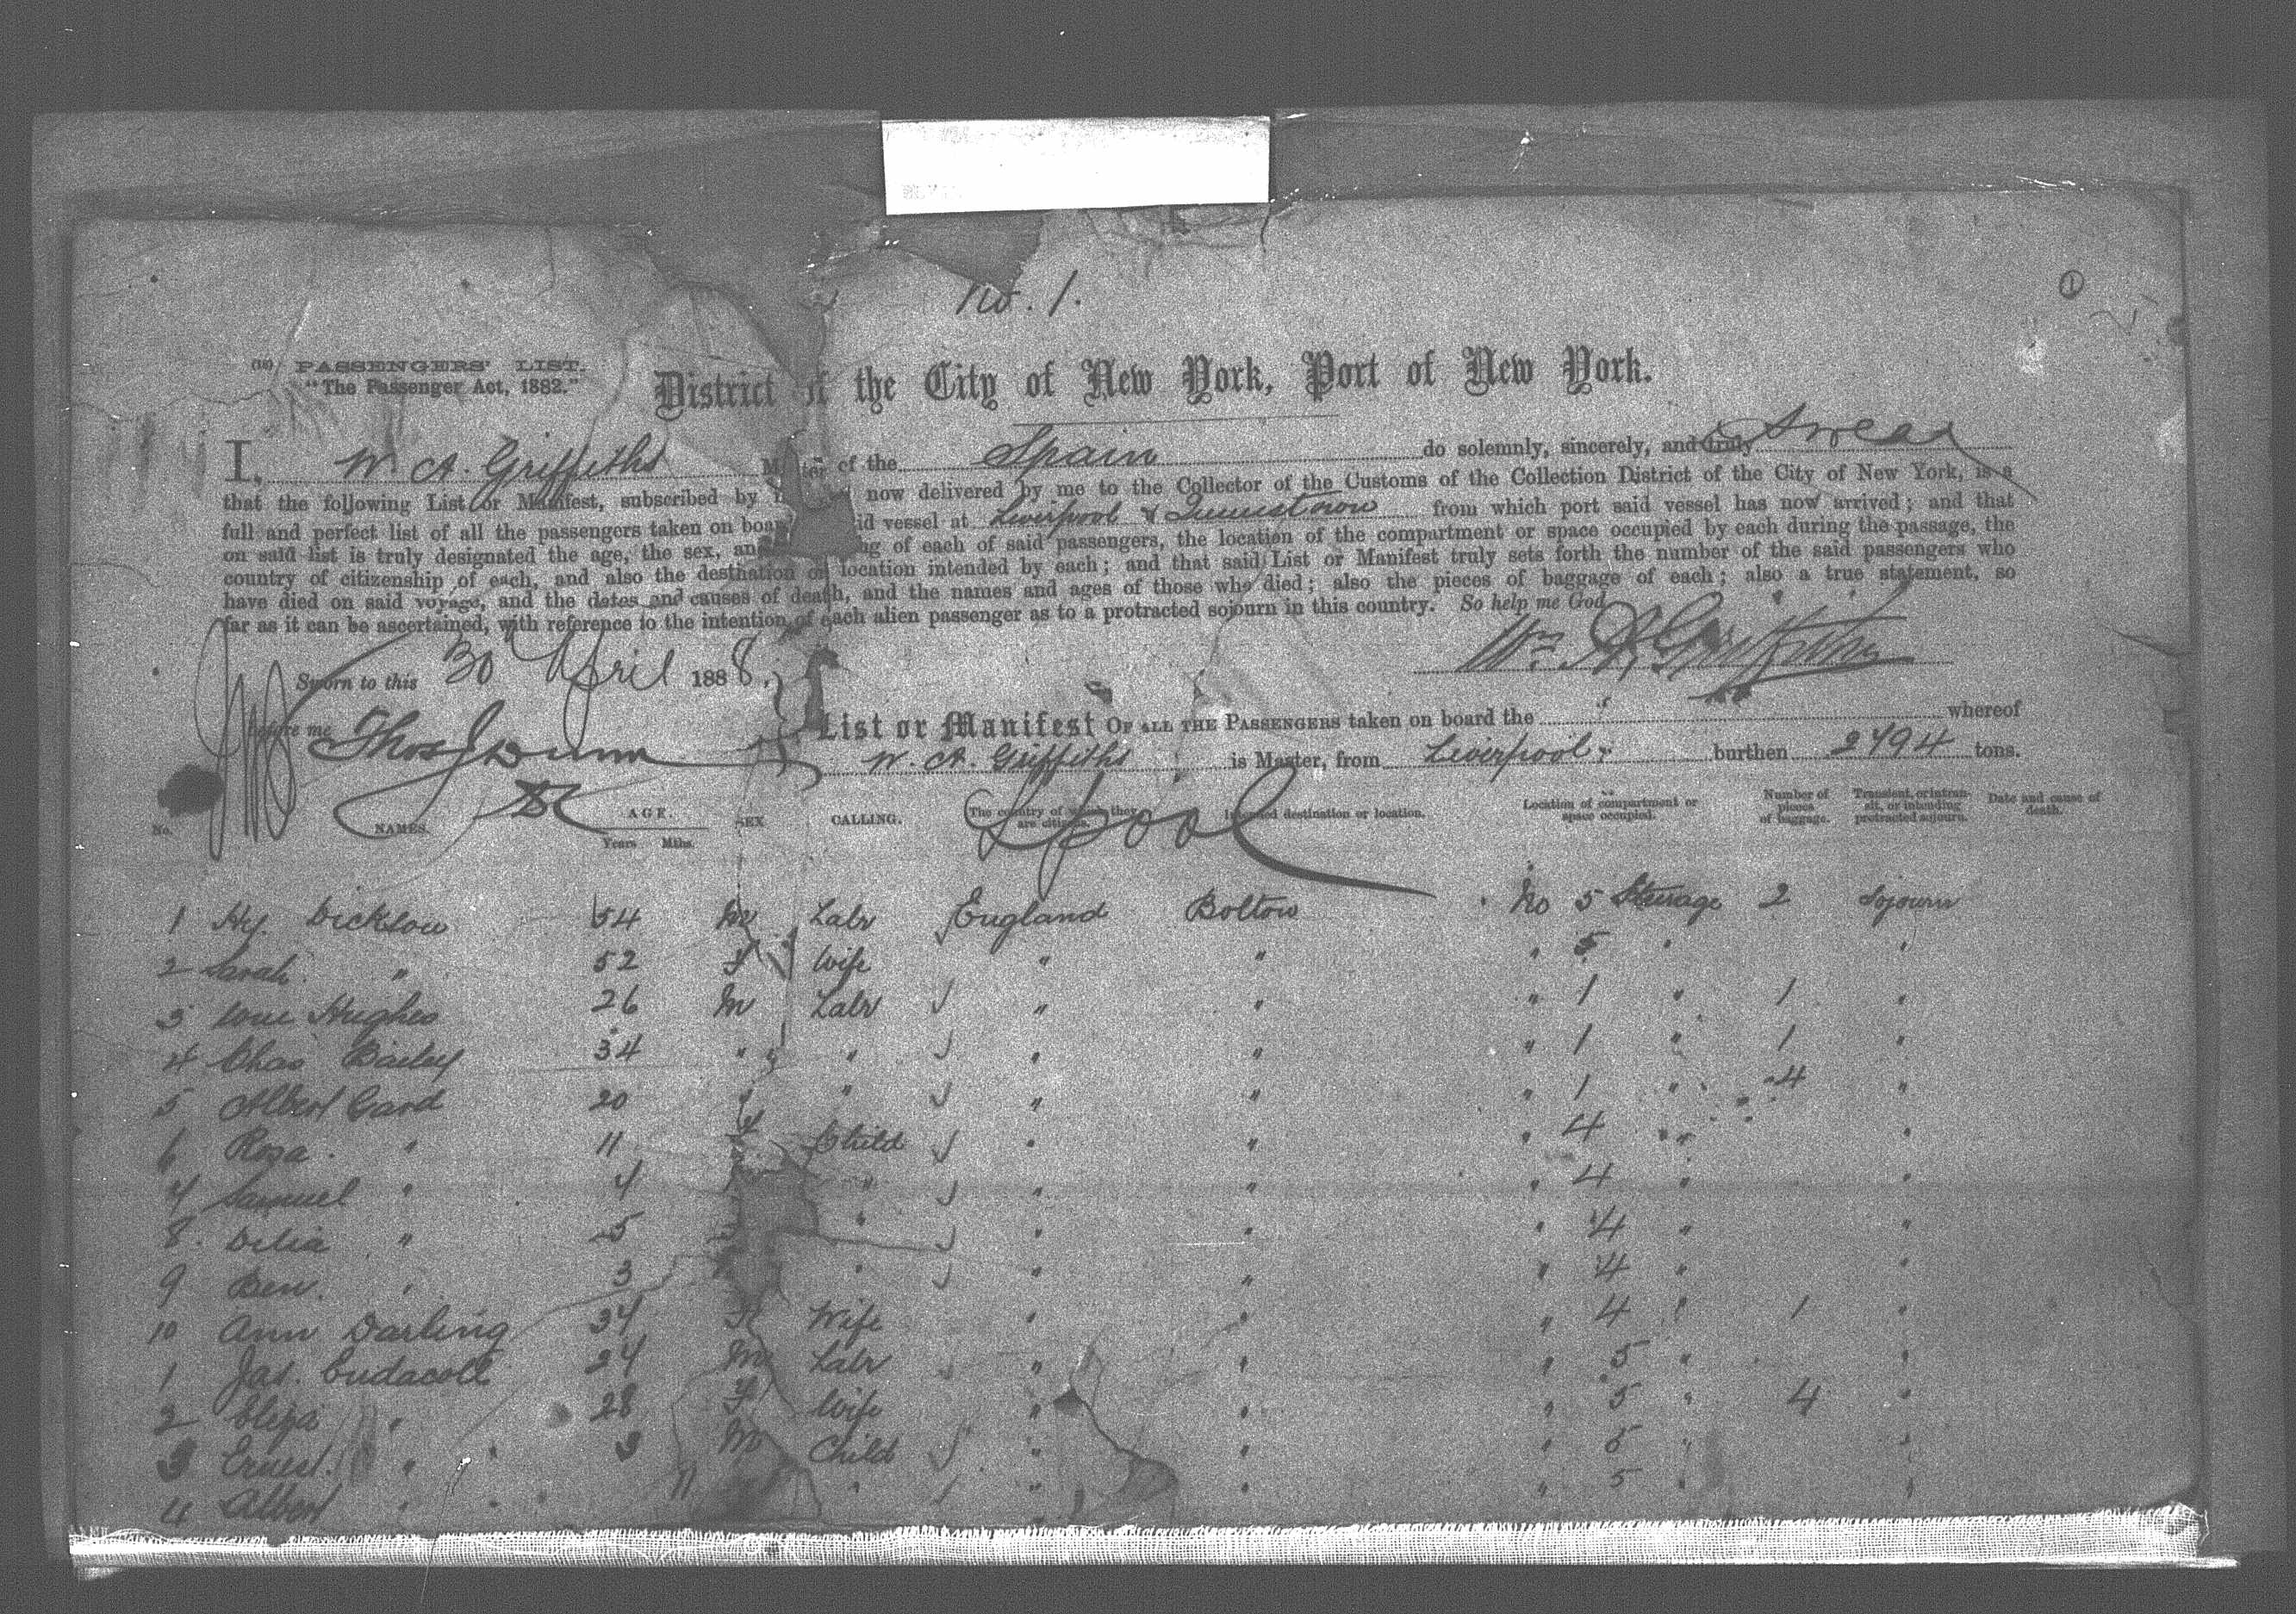 No. 1.
1
(10) PASSENGERS' LIST.
"The Passenger Act, 1882."
District of the City of New York, Port of New York.
I, W. A. Griffiths Master of the Spain do solemnly, sincerely, and truly Swear
that the following List or Manifest, subscribed by now delivered by me to the Collector of the Customs of the Collection District of the City of New York, is a
full and perfect list of all the passengers taken on board said vessel at Liverpool & Queenstown from which port said vessel has now arrived; and that
on said list is truly designated the age, the sex, and of each of said passengers, the location of the compartment or space occupied by each during the passage, the
country of citizenship of each, and also the destination or location intended by each; and that said List or Manifest truly sets forth the number of the said passengers who
have died on said voyage, and the dates and causes of death, and the names and ages of those who died; also the pieces of baggage of each; also a true statement, so
far as it can be ascertained, with reference to the intention of each alien passenger as to a protracted sojourn in this country. So help me God
Wm A. Griffiths
Sworn to this 30 April 1888,
before me Thos J Dunn
List or Manifest OF ALL THE PASSENGERS taken on board the " whereof
W. A. Griffiths is Master, from Liverpool burthen tons.
L'pool
No. NAMES. AGE. Years Mths. SEX CALLING. The country of which they are citizens. Intended destination or location. Location of compartment or space occupied. Number of pieces of baggage. Transient, or in transit, or intending protracted sojourn. Date and cause of death.
1 Hy. 54 M Labr England Bolton No 5 Steerage 2 Sojourn
2 Sarah " 52 F Wife " " " 5 " "
3 Hughes 26 M Labr " " " 1 " 1 "
4 Chas Bailey 34 " " " " " 1 " 1 "
5 Albert Gard 20 " " " " " 1 " 4 "
6 Rosa " 11 F Child " " " 4 " "
7 Samuel " 7 " " " " 4 " "
8 Delia " 5 " " " " 4 " "
9 Ben. " 3 " " " " 4 " "
10 Ann Darling 37 F Wife " " " 4 " 1 "
1 Jas. Endacott 27 M Labr " " " 5 " "
2 Eliza " 28 F Wife " " " 5 " 4 "
3 Ernest. " 3 M Child " " " 5 " "
4 Albert " 11 " " " " 5 " "